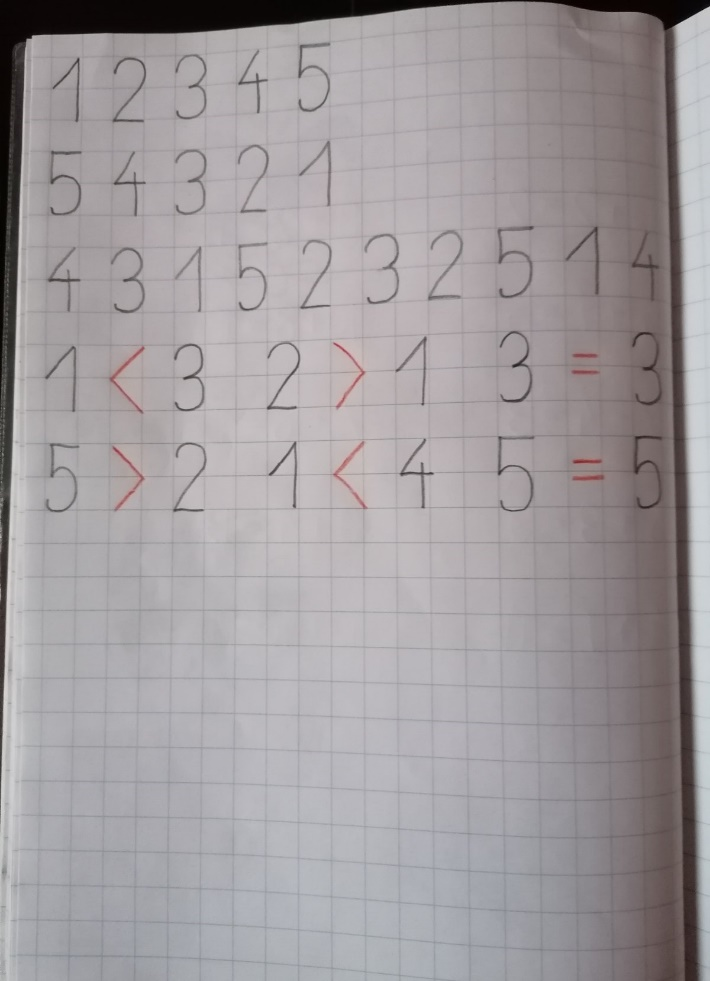 1 2 3 4 5
5 4 3 2 1
4 3 1 5 2 3 2 5 1 4
1 < 3 2 > 1 3 = 3
5 > 2 1 < 4 5 = 5